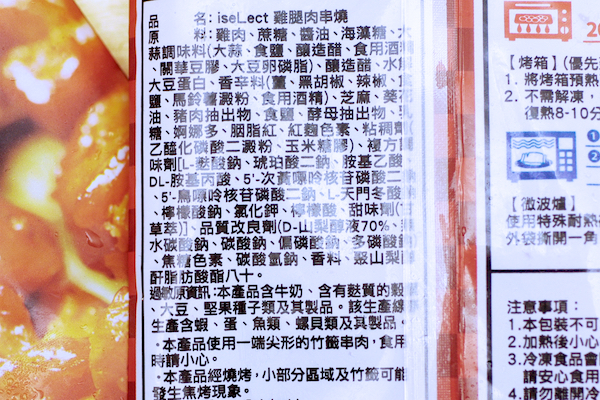 品　　名: iseLect 雞腿肉串燒
原　　料: 雞肉、蔗糖、醬油、海藻糖、大
蒜調味料(大蒜、食鹽、釀造醋、食用酒精
、關華豆膠、大豆卵磷脂)、釀造醋、水解
大豆蛋白、香辛料(薑、黑胡椒、辣椒、食
鹽、馬鈴薯澱粉、食用酒精)、芝麻、葵花
油、豬肉抽出物、食鹽、酵母抽出物、乳
糖、婀娜多、胭脂紅、紅麴色素、粘稠劑(
乙醯化磷酸二澱粉、玉米糖膠)、複方調
味劑[L-麩酸鈉、琥珀酸二鈉、胺基乙酸、
DL-胺基丙酸、5'-次黃嘌呤核苷磷酸二鈉
、5'-鳥嘌呤核苷磷酸二鈉、L-天門冬酸鈉
、檸檬酸鈉、氯化鉀、檸檬酸、甜味劑(甘
草萃)]、品質改良劑(D-山梨醇液70%、
水碳酸鈉、碳酸鈉、偏磷酸鈉、多磷酸鈉)
、焦糖色素、碳酸氫鈉、香料、聚山梨
酐脂肪酸酯八十。
過敏原資訊:本產品含牛奶、含有麩質的穀
、大豆、堅果種子類及其製品。該生產線
生產含蝦、蛋、魚類、螺貝類及其製品。
·本產品使用一端尖形的竹籤串肉,食用
時請小心。
·本產品經燒烤,小部分區域及竹籤可能
發生焦烤現象。
【烤箱】(優先
1. 將烤箱預熱
2. 不需解凍,
復熱8-10分
1
2
【微波爐】
使用特殊耐熱
外袋撕開一角
注意事項:
1.本包裝不可
2.加熱後小心
3.冷凍食品會
請安心食用
4.請勿離開冷